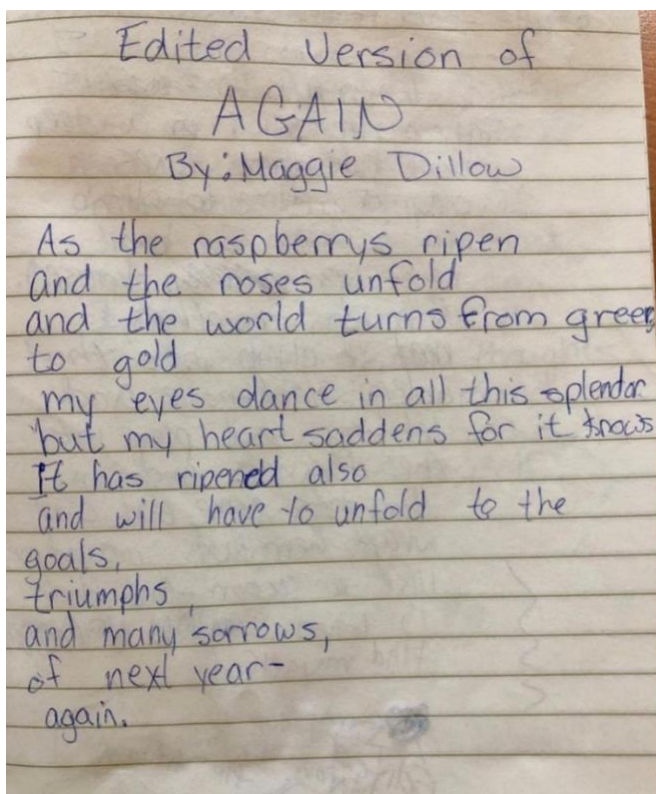 Edited Version of
AGAIN
By: Maggie Dillow
As the raspberrys ripen
and the roses unfold
and the world turns from green
to gold
my eyes dance in all this splendor
but my heart saddens for it knows
It has ripened also
and will have to unfold to the
goals,
triumphs,
and many sorrows,
of next year-
again.